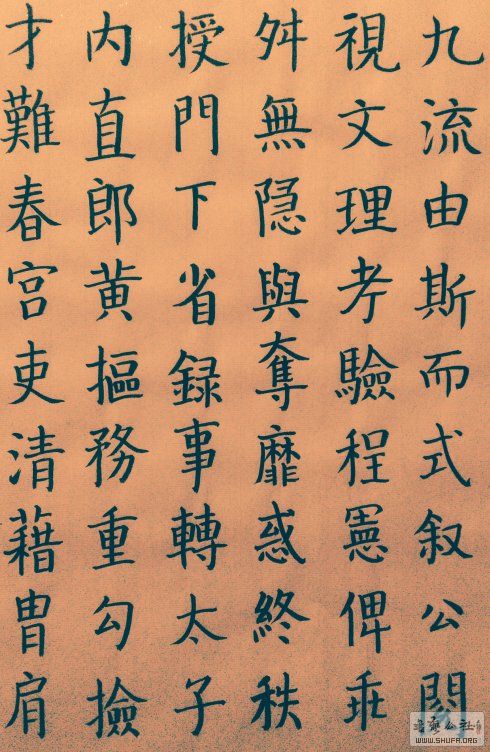 九流由斯而式叙公閲
視文理考驗程憲俾乖
舛無隐與奪靡惑終秩
授門下省録事轉太子
内直郎黄樞務重勾撿
才難春宫吏清藉胄肩
書藝公社
WWW.SHUFA.ORG